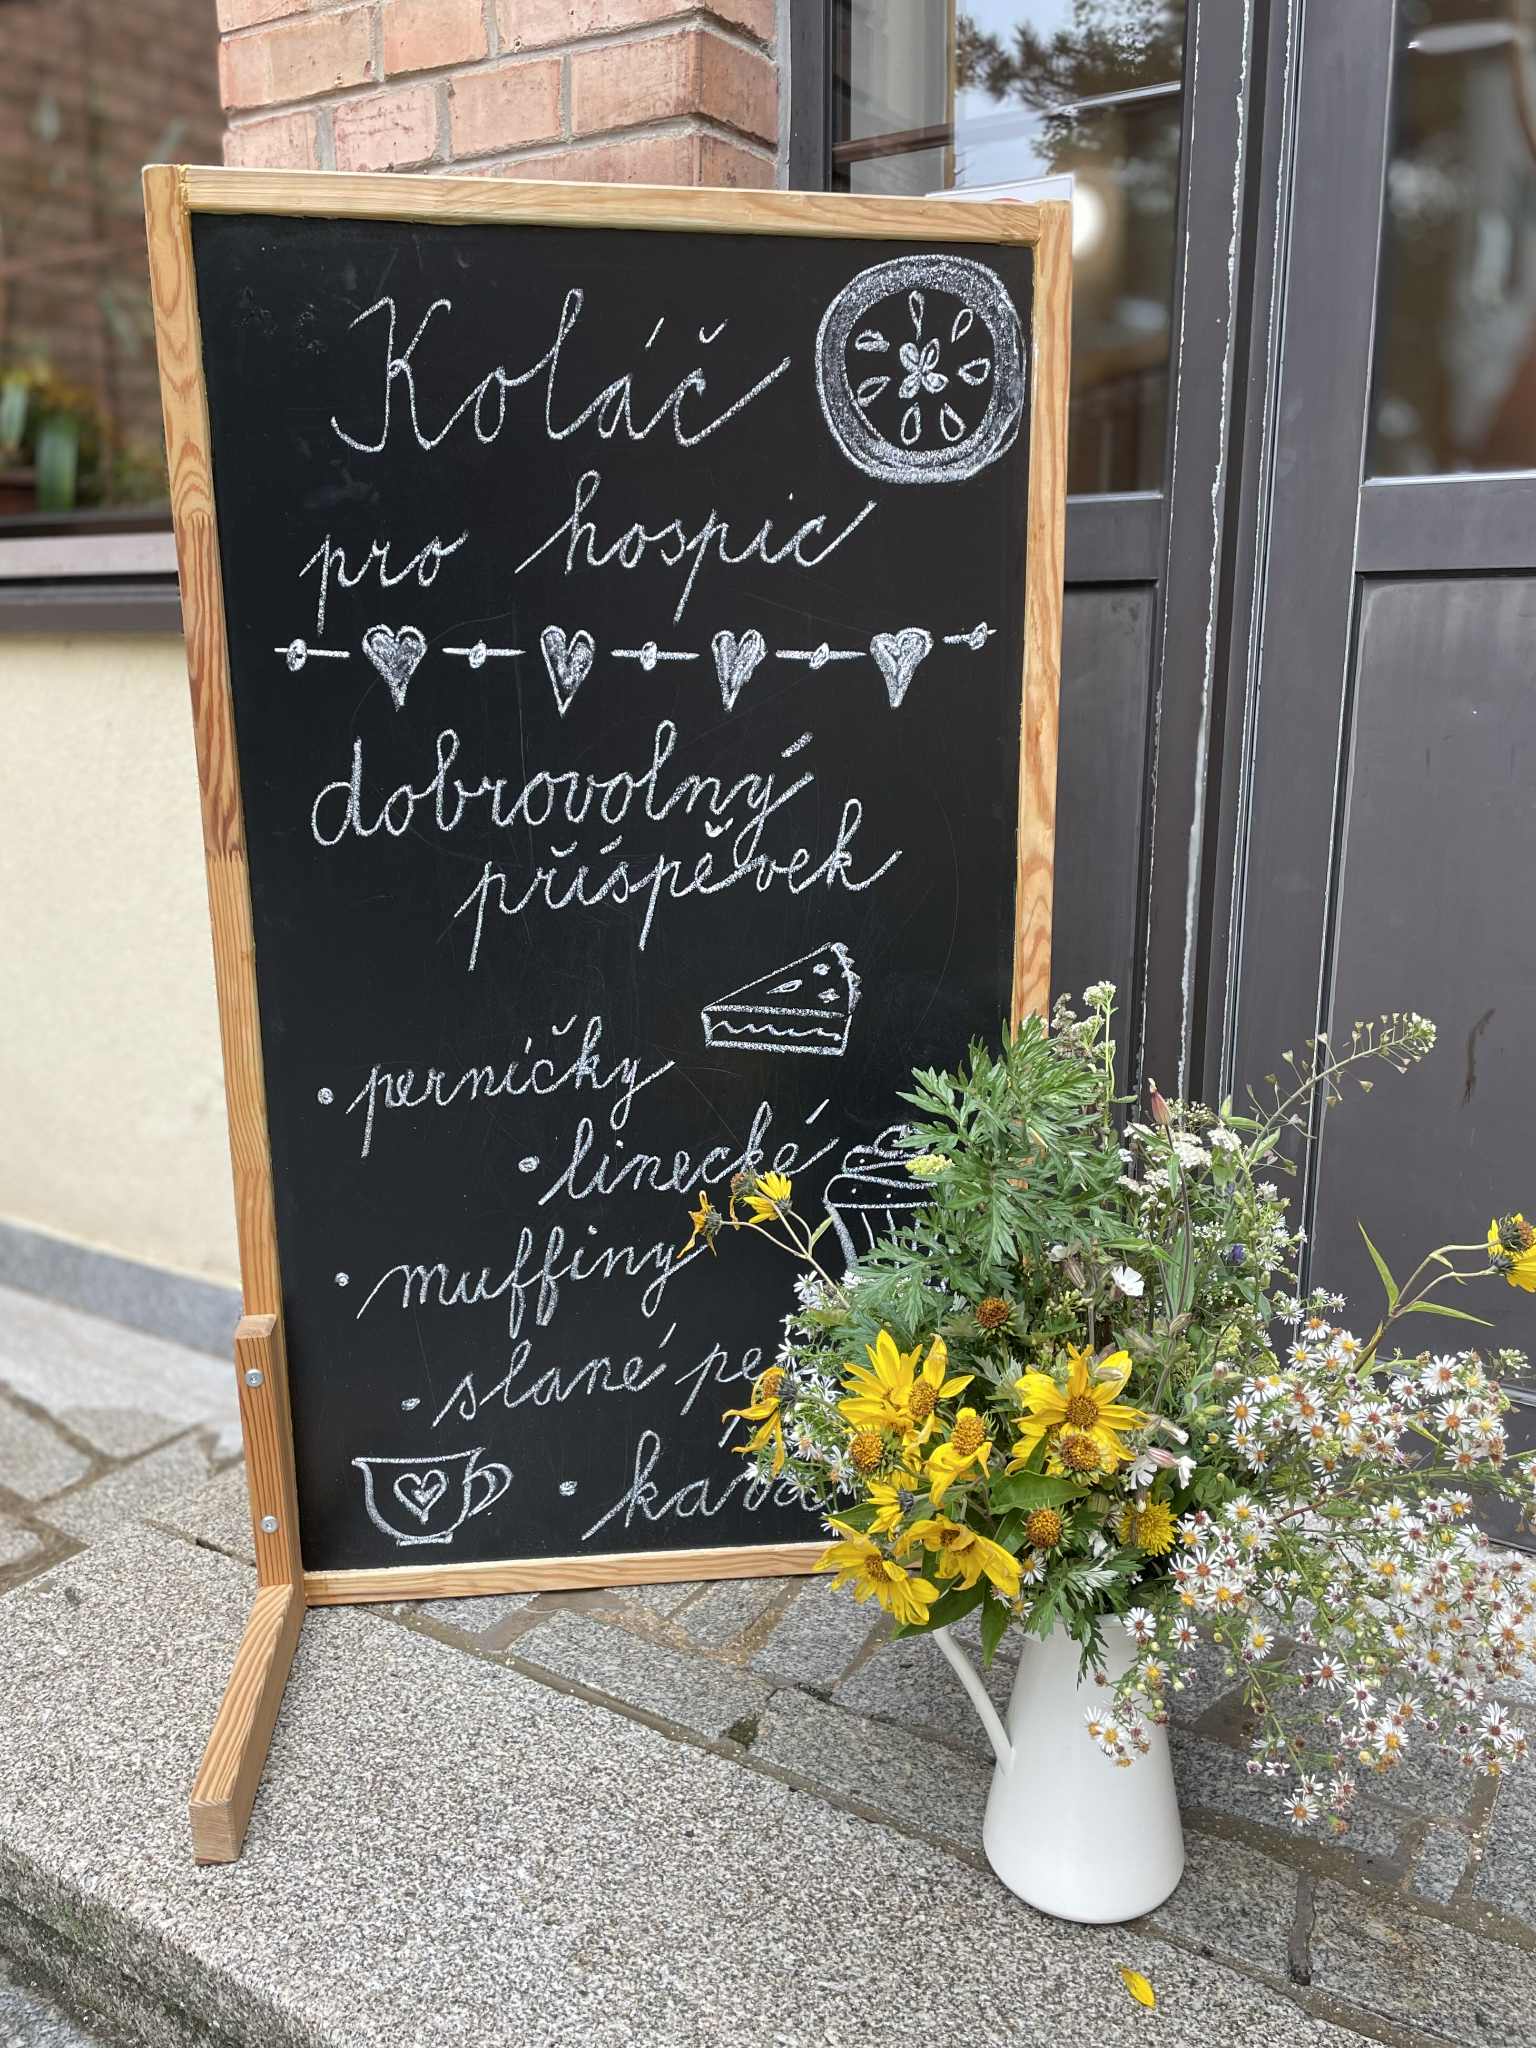 Koláč
pro hospic
dobrovolný
příspěvek
• perníčky
• linecké
• muffiny
• slané
• káva